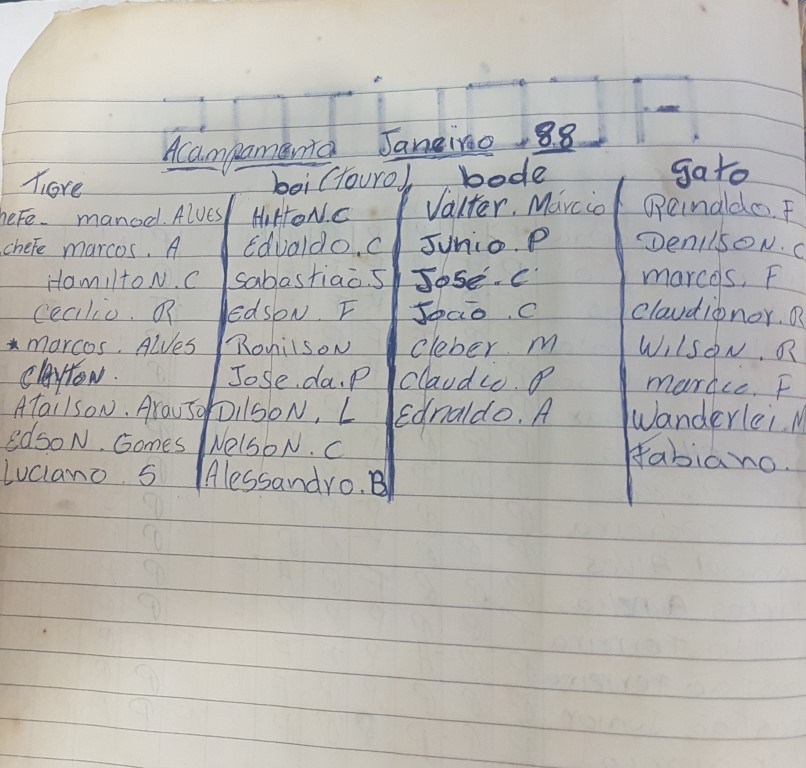 Acampamento Janeiro 88
Tigre boi (touro) bode gato
hefe. manoel. Alves Hilton.C Valter. Márcio Reinaldo. F
chefe marcos. A Edvaldo. C Junio. P Denilson. C
Hamilton. C Sabastião. S José. C marcos. F
Cecilio. R Edson. F João. C Claudionor. R
* marcos. Alves Ronilson Cleber M Wilson. R
Clayton. Jose. da. P Claudio. P marcio. F
Atailson. Araujo Dilson. L Ednaldo. A Wanderlei. M
Edson. Gomes Nelson. C Fabiano.
Luciano S Alessandro. B